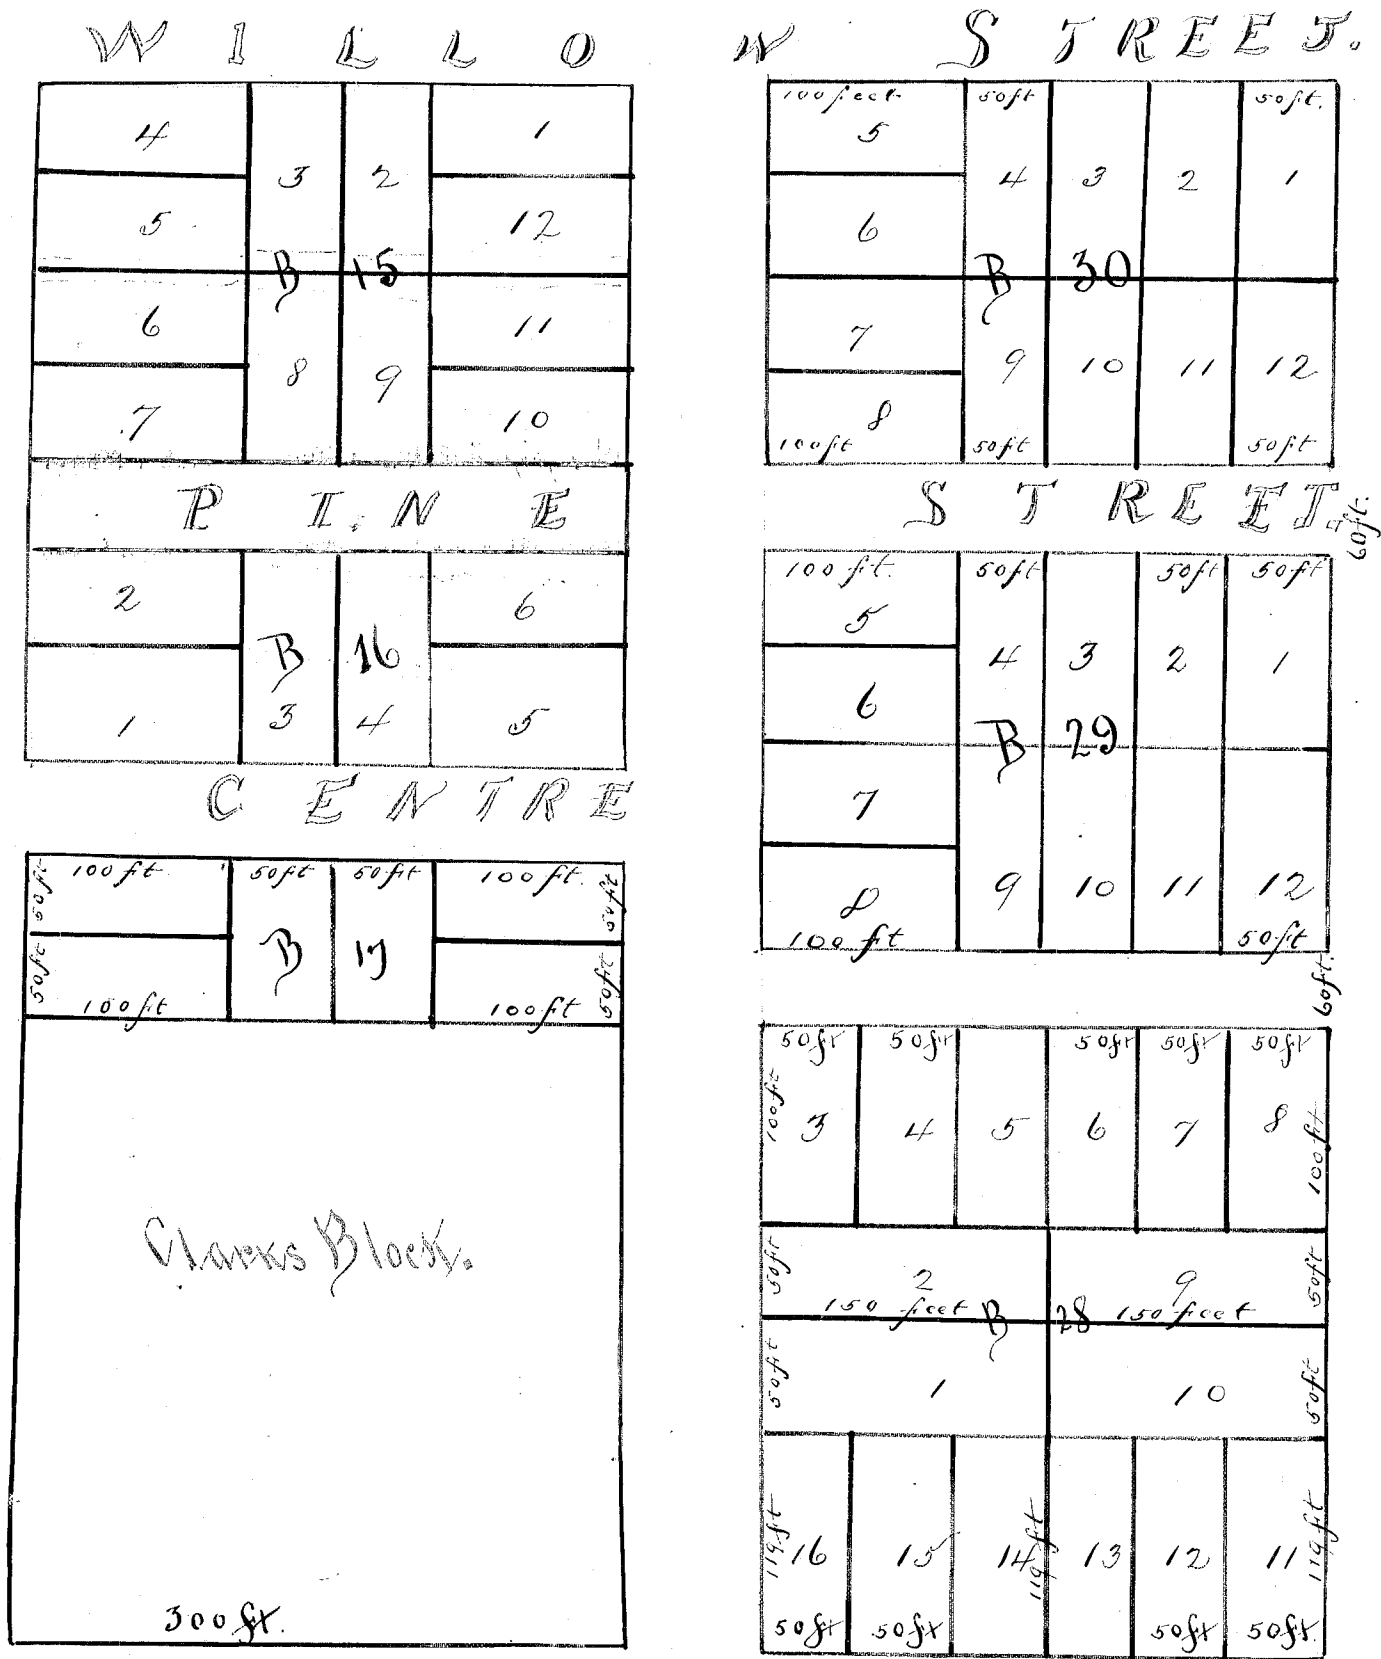 WILLOW STREET.
4
3
2
1
5
12
B 15
6
8
9
11
7
10
100 feet
50ft
50ft.
5
4
3
2
1
6
B 30
7
9
10
11
12
8
100ft
50ft
50ft
PINE STREET.
60ft.
2
6
B 16
1
3
4
5
100 ft.
50ft
50ft
50ft
5
4
3
2
1
6
B 29
7
8
9
10
11
12
100 ft
50ft
60ft.
CENTRE
100 ft
50ft
50ft
100 ft.
50ft
50ft
B 17
50ft
50ft
100ft
100ft
Clarks Block.
300 ft.
50ft
50ft
50ft
50ft
50ft
100ft
3
4
5
6
7
8
100ft
50ft
2
9
50ft
150 feet
B 28
150 feet
50ft
1
10
50ft
119ft
16
15
14
119ft
13
12
11
119ft
50ft
50ft
50ft
50ft.